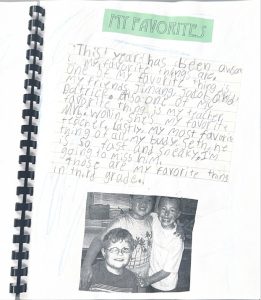 MY FAVORITES
This year has been
my favorite thing are,
one of my favorite thing is
my friends, Juliana, Jacob,
Also one of my
favorite thing is my teacher
Mr. Wolin. She's my favorite
teacher. Lastly my most favorite
thing of all my buddy Seth, he
is so fast and sneaky. I'm
going to miss him.
Those are my favorite thing
in third grade.